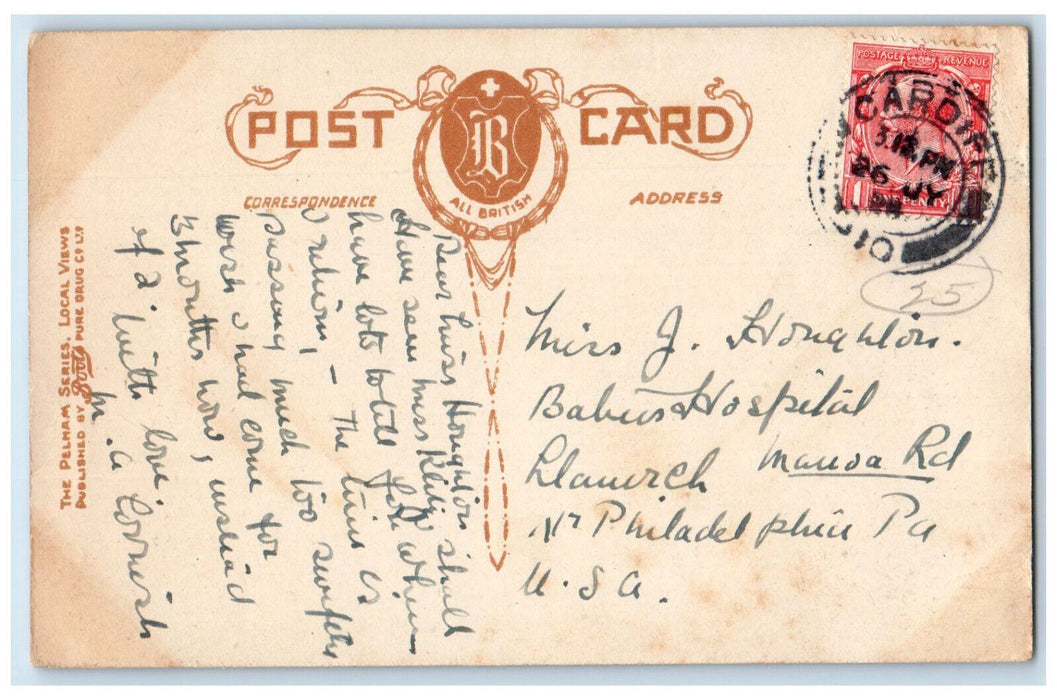 POST CARD
B
ALL BRITISH
CORRESPONDENCE
ADDRESS
THE PELHAM SERIES. LOCAL VIEWS
PUBLISHED BY Boots PURE DRUG CO LTD
POSTAGE REVENUE
PENNY
CARDIFF
3.15 PM
26 JY
25
Dear Miss Houghton shall
Have seen Miss
have lots to tell you when
I return, – The time is
passing much too swiftly
wish I had come for
3 months now, instead
of 2. With love,
M. A. Cornish
Miss J. Houghton.
Babies Hospital
Llanerch Manoa Rd
Nr Philadelphia Pa
U.S.A.